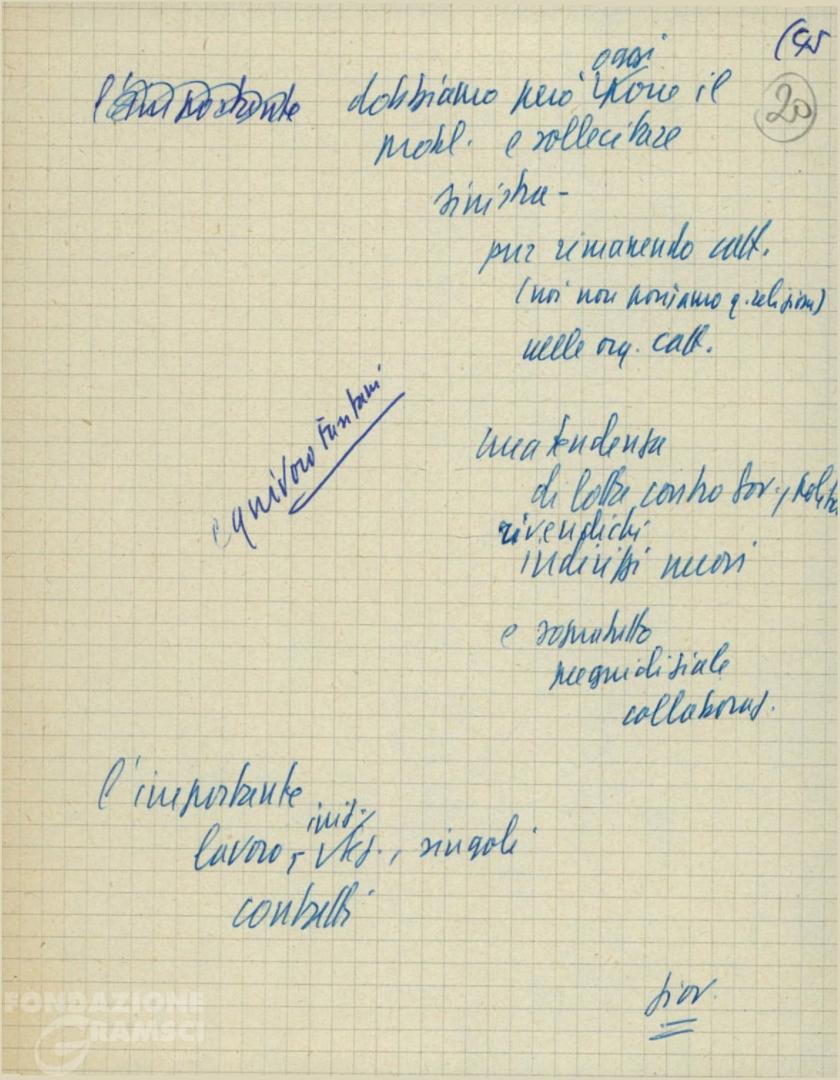 20
oggi
l'importante dobbiamo però porre il
probl. e sollecitare
sinistra -
pur rimanendo catt.
(noi non poniamo q. religiosa)
nelle org. catt.
equivoco Fanfani
una tendenza
di lotta contro gov., polit.
rivendichi
indirizzi nuovi
e sopratutto
pregiudiziale
collaboraz.
l'importante
iniz.
lavoro, singoli
contatti
giov.
FONDAZIONE
GRAMSCI